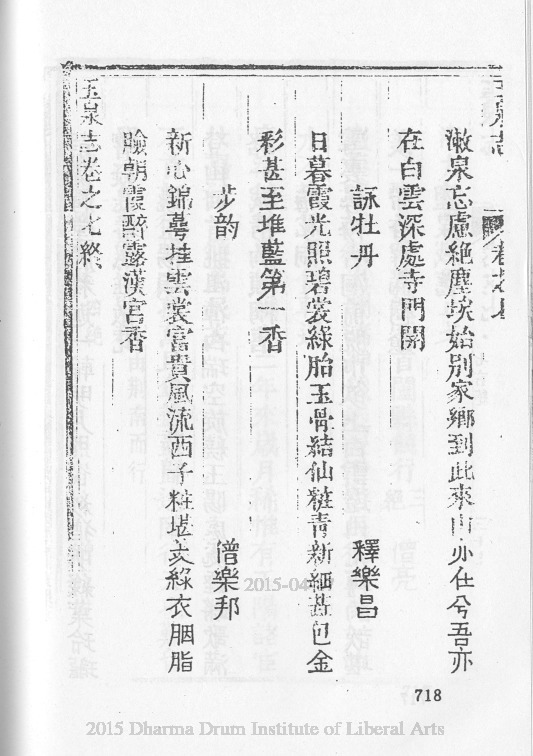 玉泉志
卷之七
漱泉忘慮絶塵埃始別家鄉到此來山亦在兮吾亦
在白雲深處寺門開
詠牡丹 釋樂昌
日暮霞光照碧裳綠胎玉骨結仙粧青新細蕋包金
彩甚至堆藍第一香
步韵 僧樂邦
新心錦萼挂雲裳富貴風流西子粧堪愛綠衣胭脂
臉朝霞醉露漢宮香
玉泉志卷之七終
718
2015 Dharma Drum Institute of Liberal Arts